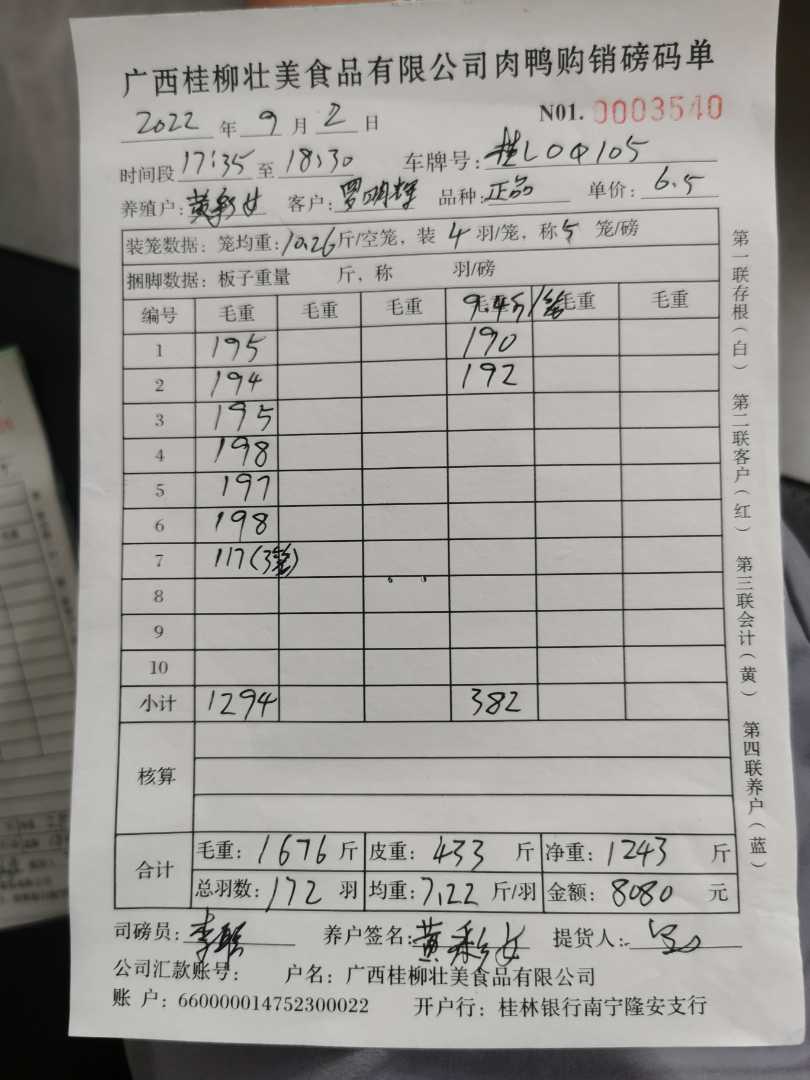 广西桂柳壮美食品有限公司肉鸭购销磅码单
2022 年 9 月 2 日 N01. 0003540
时间段 17:35 至 18:30 车牌号: 桂L0Q105
养殖户: 黄彩女 客户: 罗明辉 品种: 正品 单价: 6.5
装笼数据: 笼均重: 10.26 斤/空笼, 装 4 羽/笼, 称 5 笼/磅
捆脚数据: 板子重量 斤, 称 羽/磅
编号 毛重 毛重 毛重 毛重 9.4斤/笼 毛重 毛重
1 195 190
2 194 192
3 195
4 198
5 197
6 198
7 117(3笼)
8
9
10
小计 1294 382
核算
合计 毛重: 1676 斤 皮重: 433 斤 净重: 1243 斤
总羽数: 172 羽 均重: 7.22 斤/羽 金额: 8080 元
司磅员: 养户签名: 黄彩女 提货人:
公司汇款账号: 户名: 广西桂柳壮美食品有限公司
账 户: 660000014752300022 开户行: 桂林银行南宁隆安支行
第一联存根(白) 第二联客户(红) 第三联会计(黄) 第四联养户(蓝)